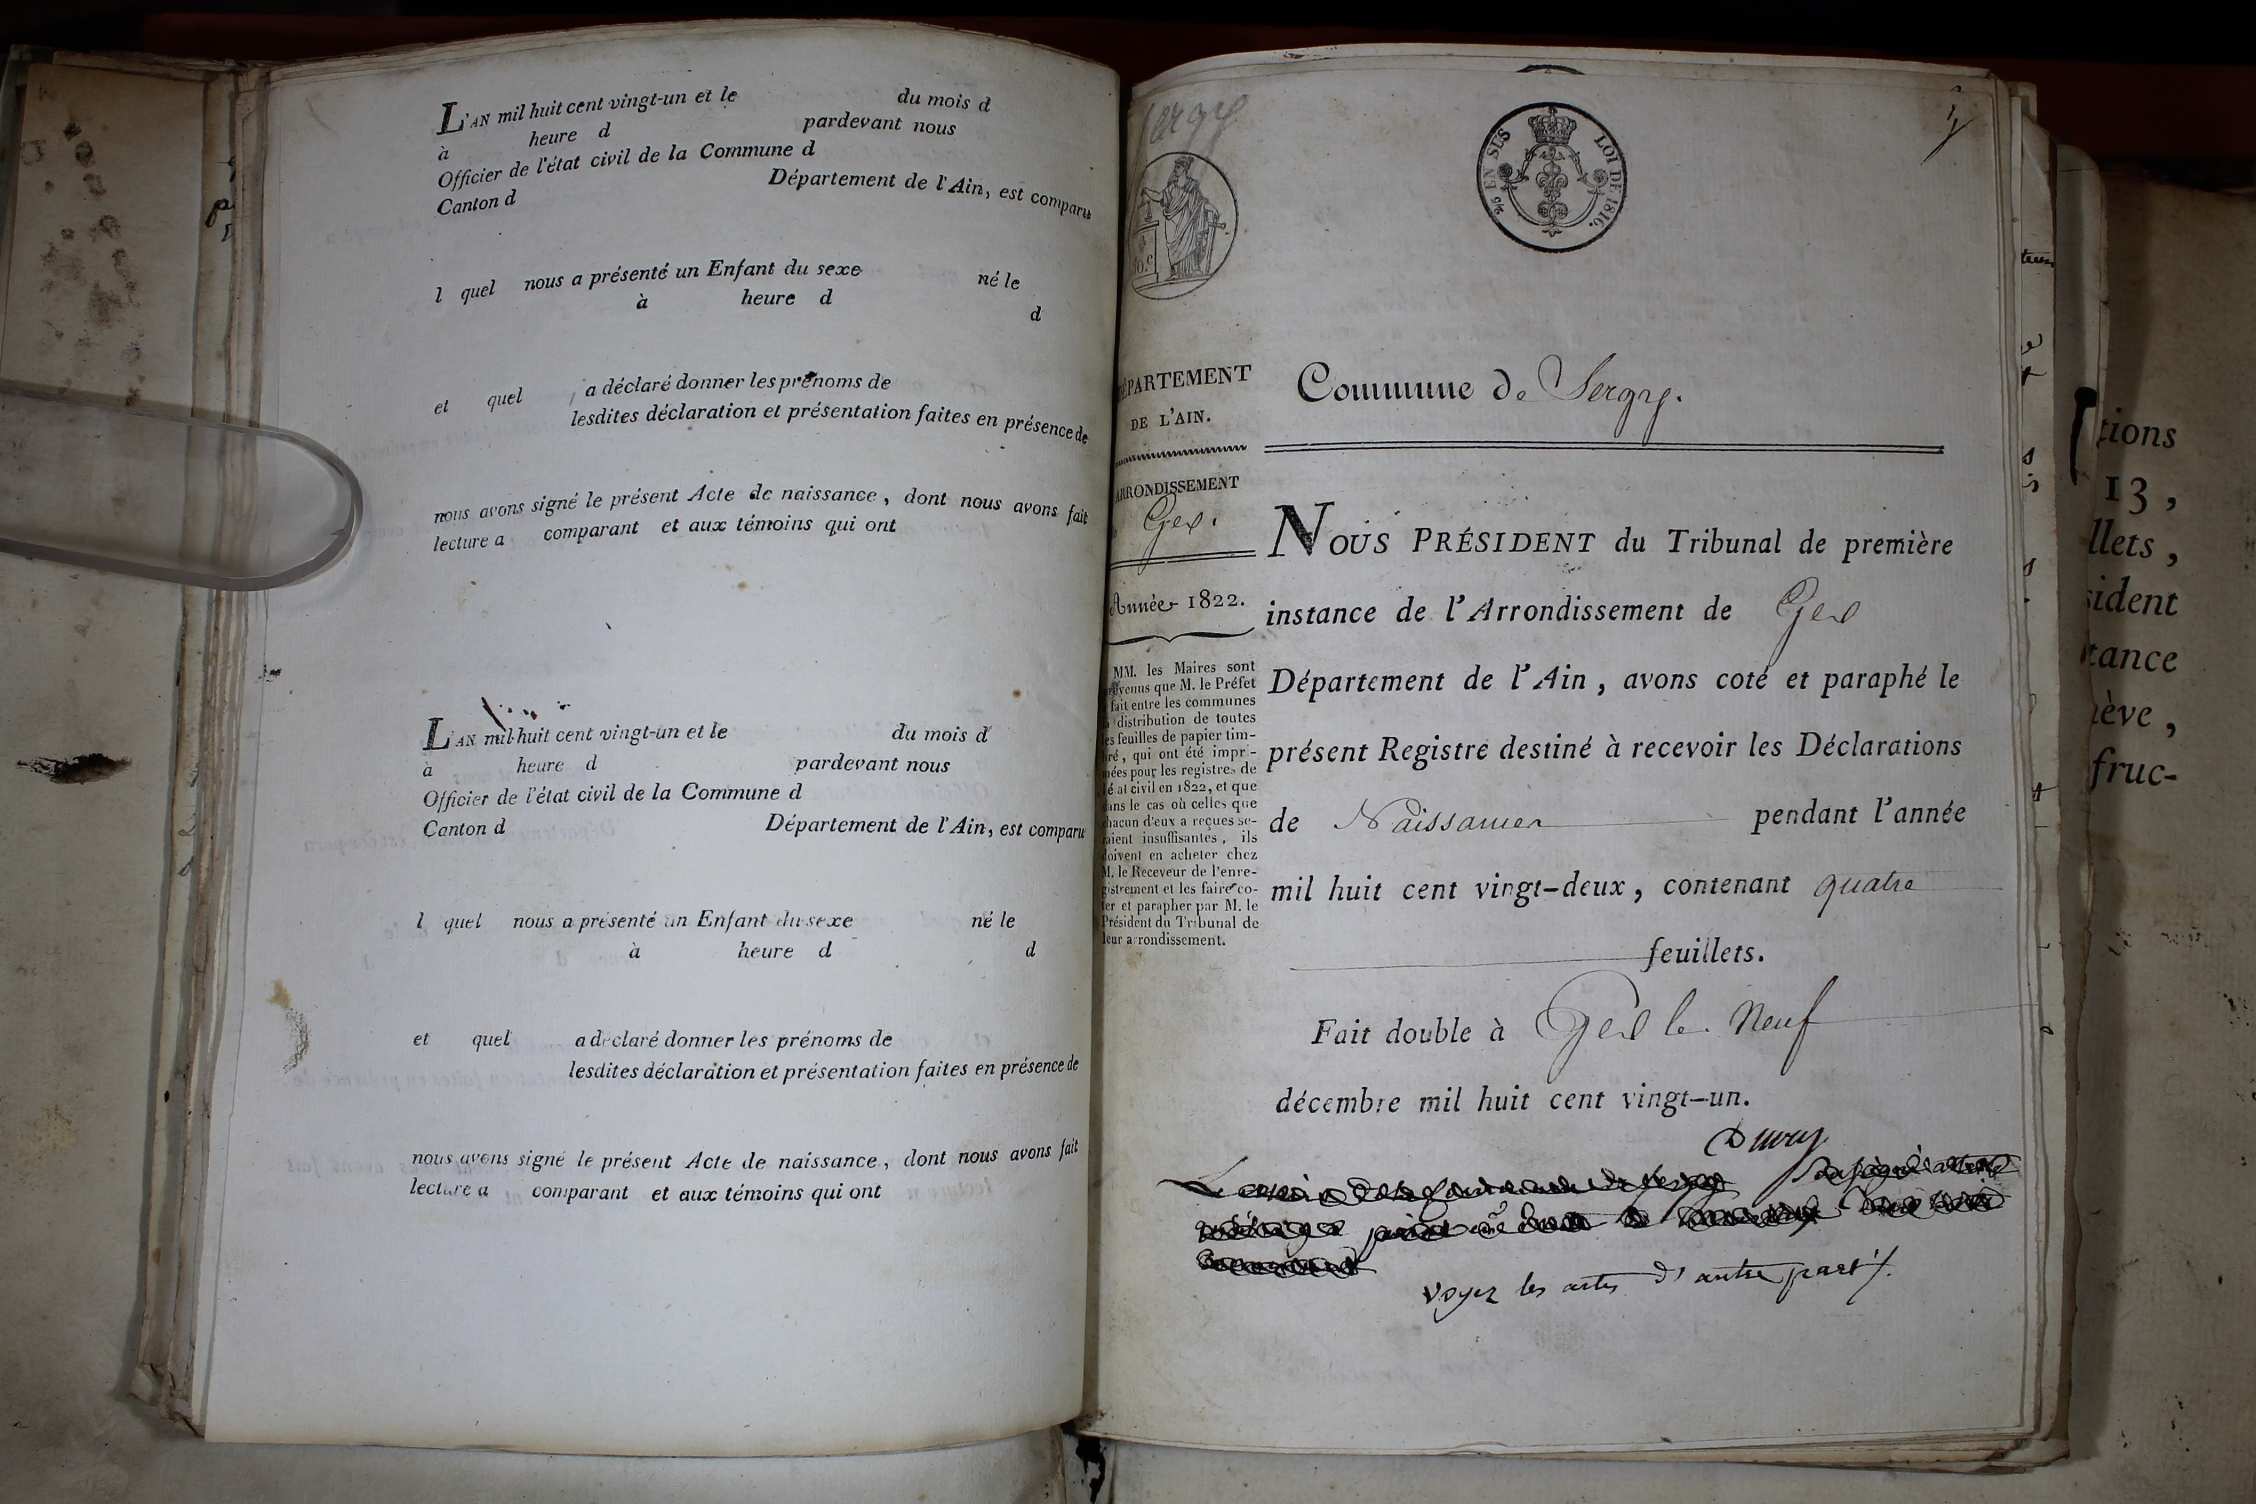 L'AN mil huit cent vingt-un et le du mois d
à heure d pardevant nous
Officier de l'état civil de la Commune d
Canton d Département de l'Ain, est comparu
l quel nous a présenté un Enfant du sexe né le
à heure d
d
et quel a déclaré donner les prénoms de
lesdites déclaration et présentation faites en présence de
nous avons signé le présent Acte de naissance, dont nous avons fait
lecture a comparant et aux témoins qui ont
L'AN mil huit cent vingt-un et le du mois d
à heure d pardevant nous
Officier de l'état civil de la Commune d
Canton d Département de l'Ain, est comparu
l quel nous a présenté un Enfant du sexe né le
à heure d d
et quel a déclaré donner les prénoms de
lesdites déclaration et présentation faites en présence de
nous avons signé le présent Acte de naissance, dont nous avons fait
lecture a comparant et aux témoins qui ont
Sergy
EN SUS LOI DE 1816.
DÉPARTEMENT
DE L'AIN.
ARRONDISSEMENT
Gex.
Année 1822.
MM. les Maires sont
prévenus que M. le Préfet
a fait entre les communes
la distribution de toutes
les feuilles de papier tim-
bré, qui ont été impri-
mées pour les registres de
l'état civil en 1822, et que
dans le cas où celles que
chacun d'eux a reçues se-
raient insuffisantes, ils
doivent en acheter chez
M. le Receveur de l'enre-
gistrement et les faire co-
ter et parapher par M. le
Président du Tribunal de
leur arrondissement.
Commune de Sergy.
NOUS PRÉSIDENT du Tribunal de première
instance de l'Arrondissement de Gex
Département de l'Ain, avons coté et paraphé le
présent Registre destiné à recevoir les Déclarations
de Naissances pendant l'année
mil huit cent vingt-deux, contenant quatre
feuillets.
Fait double à Gex le Neuf
décembre mil huit cent vingt-un.
voyez les actes d'autre part
tions
13,
llets,
sident
tance
nève,
fruc-